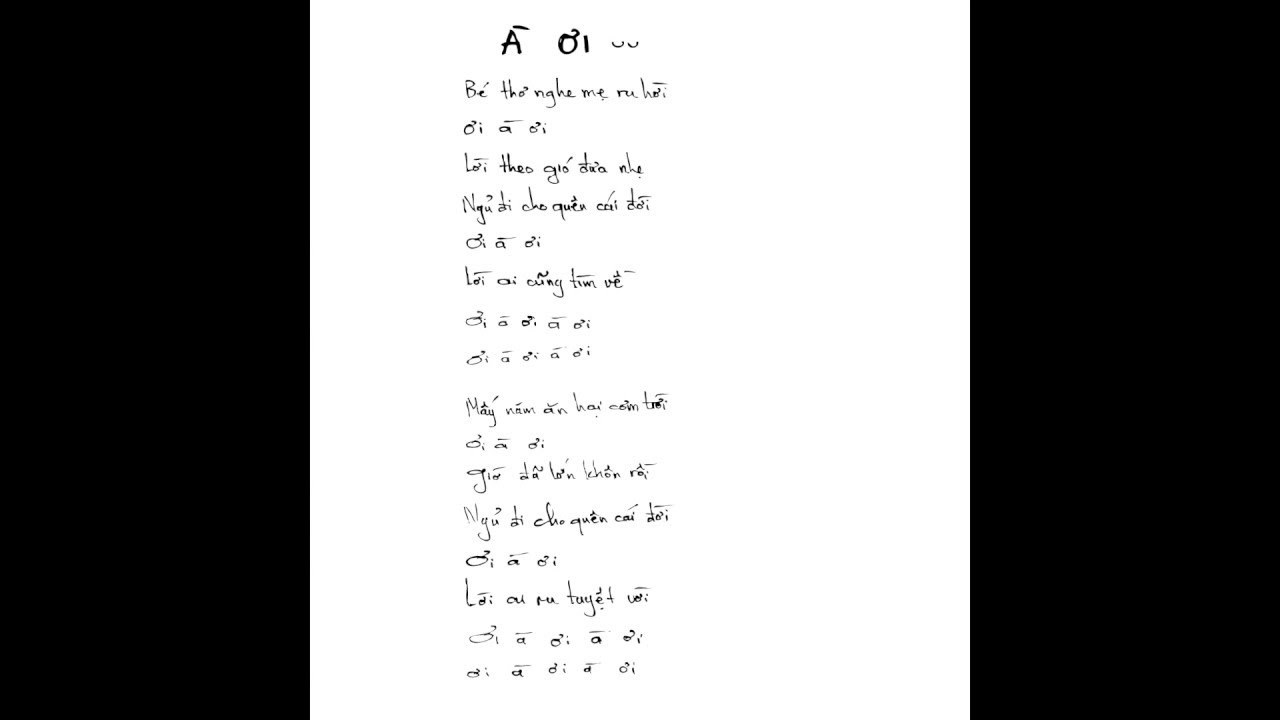 À ơi ᴗᴗ
Bé thơ nghe mẹ ru hời
Ơi à ơi
Lời theo gió đưa nhẹ
Ngủ đi cho quên cái đời
Ơi à ơi
Lời ai cũng tìm về
Ơi à ơi à ơi
Ơi à ơi à ơi
Mấy năm ăn hại cơm trời
Ơi à ơi
Giờ đã lớn khôn rồi
Ngủ đi cho quên cái đời
Ơi à ơi
Lời ai ru tuyệt vời
Ơi à ơi à ơi
Ơi à ơi à ơi